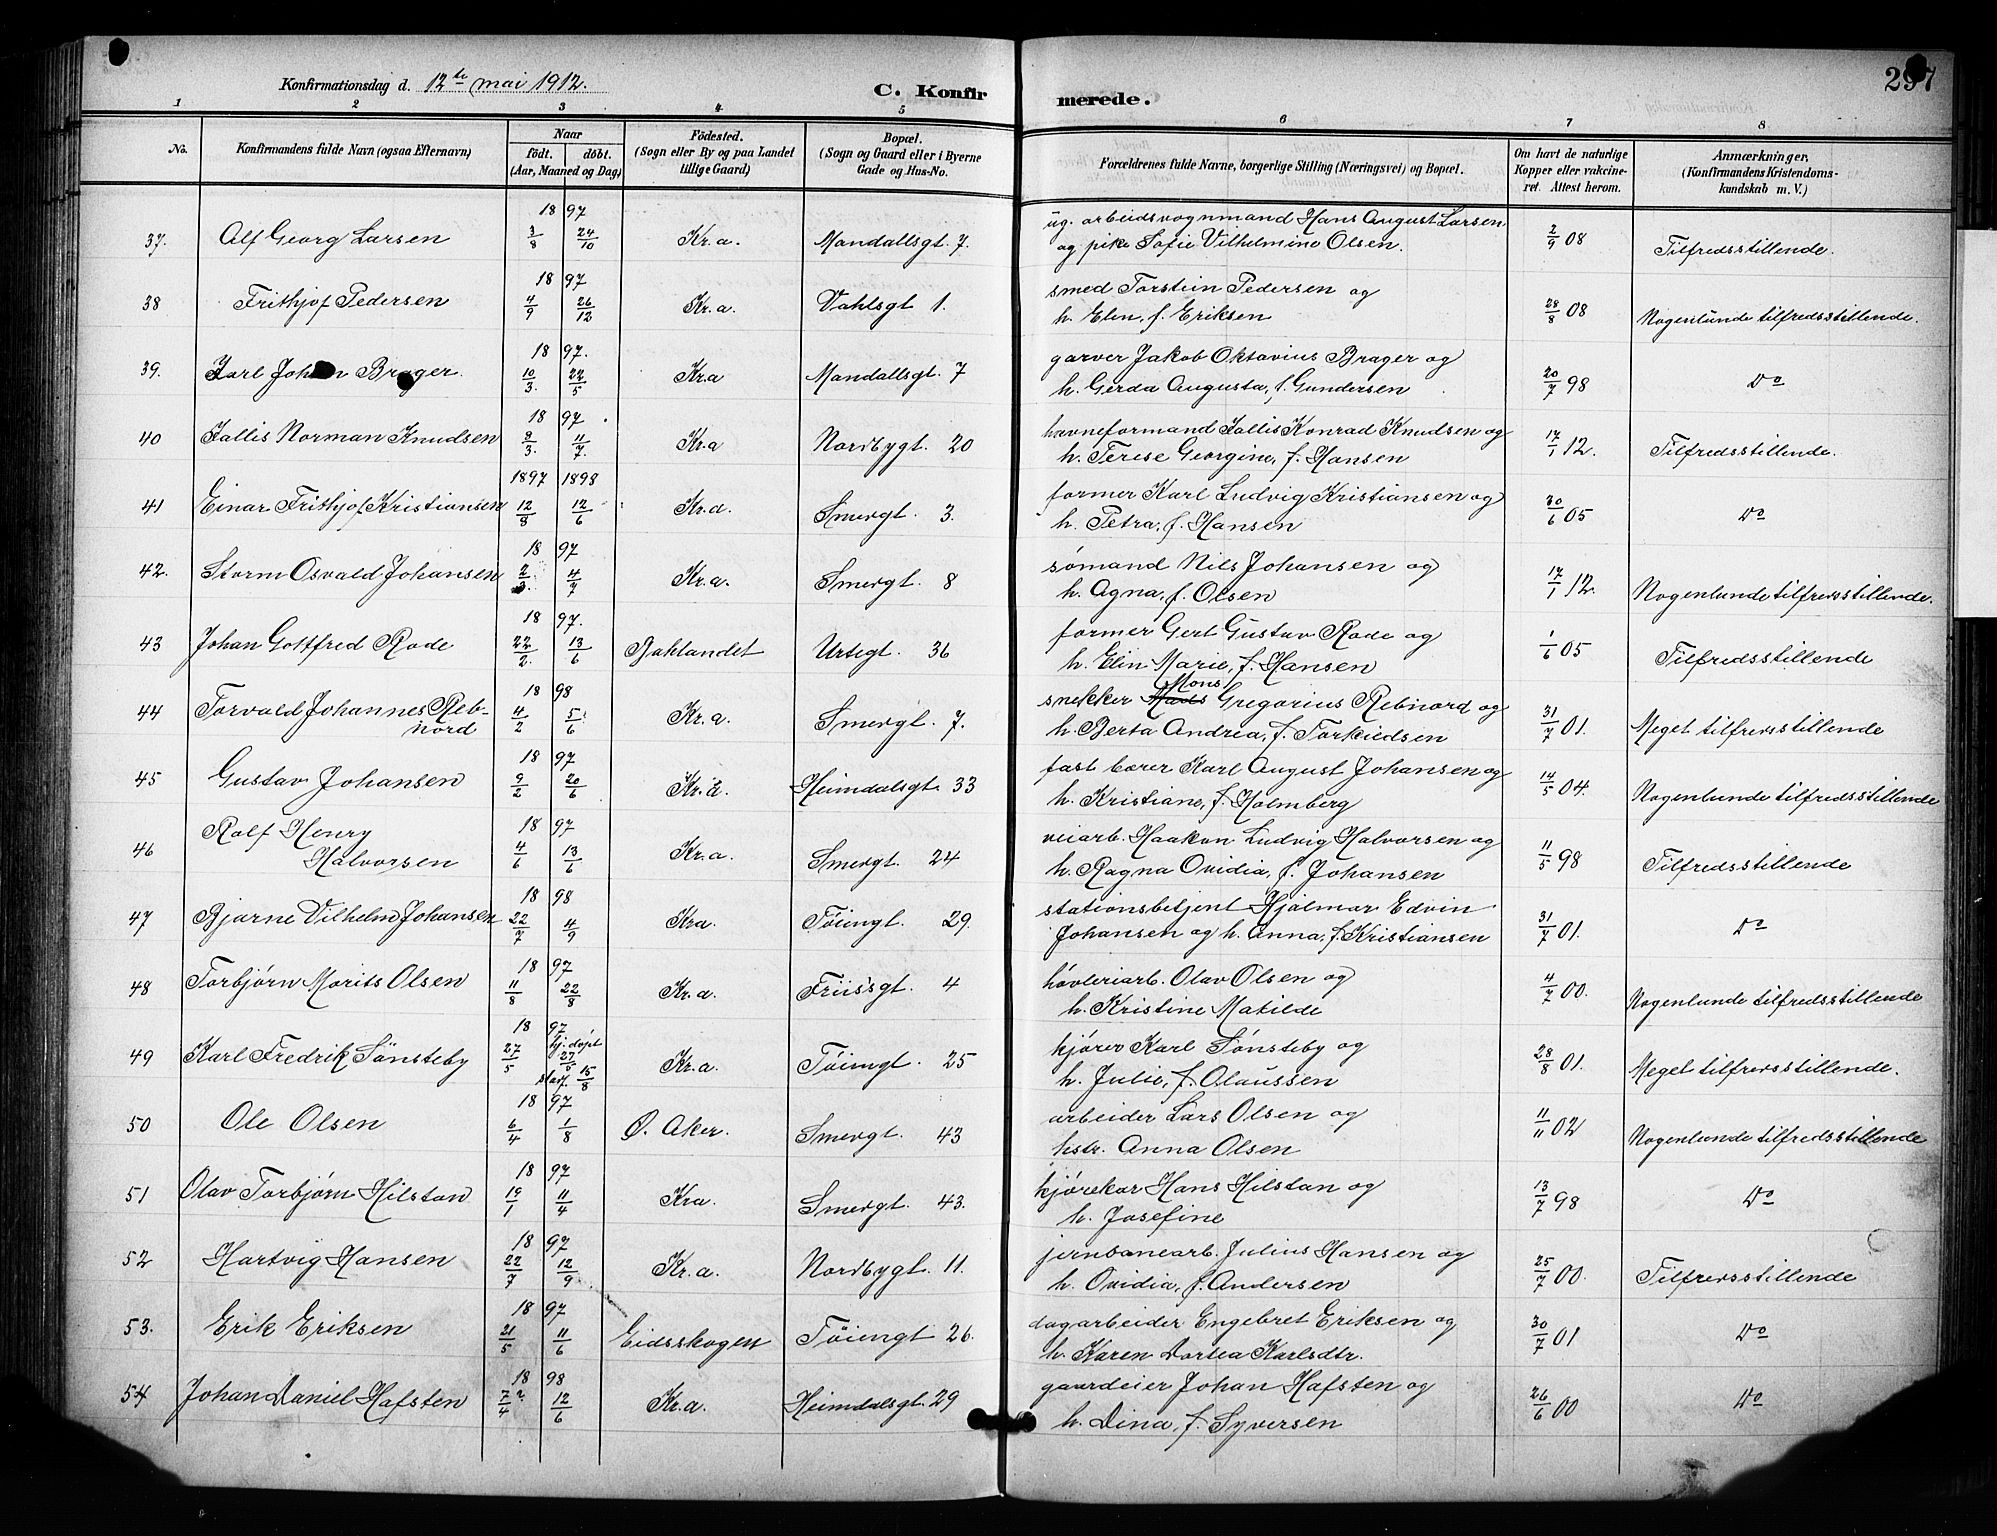 297
Konfirmationsdag d. 12te mai 1912.
C. Konfirmerede.
1 2 3 4 5 6 7 8
No.
Konfirmandens fulde Navn (ogsaa Efternavn)
Naar
födt. döbt.
(Aar, Maaned og Dag)
Födested.
(Sogn eller By og paa Landet
tillige Gaard)
Bopæl.
(Sogn og Gaard eller i Byerne
Gade og Hus-No.
Forældrenes fulde Navne, borgerlige Stilling (Næringsvei) og Bopæl.
Om havt de naturlige
Kopper eller vakcine-
ret. Attest herom.
Anmærkninger.
(Konfirmandens Kristendoms-
kundskab m. V.)
18 97
37. Alf Georg Larsen 3/8 24/10 Kr.a. Mandallsgt. 7. ug. arbeidsvognmand Hans August Larsen
og pike Sofie Vilhelmine Olsen. 2/9 08 Tilfredsstillende.
18 97
38 Frithjof Pedersen 4/9 26/12 Kr.a. Vahlsgt 1. smed Torstein Pedersen og
h. Elen, f. Eriksen 28/8 08 Nogenlunde tilfredsstillende.
18 97.
39. Karl Johan Brager. 10/3. 22/5 Kr.a Mandallsgt. 7 garver Jakob Oktavius Brager og
h. Gerda Augusta, f. Gundersen 20/7 98 Do
18 97.
40 Jallis Norman Knudsen 8/3. 11/7. Kr.a Nordbygt. 20 havneformand Jallis Konrad Knudsen og
h. Terese Georgine, f. Hansen 17/1 12. Tilfredsstillende.
1897 1898
41 Einar Frithjof Kristiansen 12/8 12/6 Kr.a. Smergt. 3. former Karl Ludvig Kristiansen og
h. Petra, f. Hansen 30/6 05 Do
18 97
42. Storm Osvald Johansen 2/3. 4/7 Kr.a. Smergt. 8 sömand Nils Johansen og
h. Agna, f. Olsen 17/1 12. Nogenlunde tilfredsstillende.
18 97.
43 Johan Gottfred Rode 22/2. 13/6 Baklandet Urtegt. 36 former Gert Gustav Rode og
h. Elin Marie, f. Hansen 1/6 05 Tilfredsstillende
18 98
44 Torvald Johannes Reb-
nord 4/2 5/6. Kr.a. Smergt. 7. snekker Mads Mons Gregorius Rebnord og
h. Berta Andrea, f. Torkildsen 31/7 01. Meget tilfredsstillende
18 97
45 Gustav Johansen 9/2 20/6 Kr.a. Heimdalsgt. 33 fast bærer Karl August Johansen og
h. Kristiane, f. Holmberg 14/5 04. Nogenlunde tilfredsstillende
18 97
46 Rolf Henry
Halvorsen 4/6 13/6 Kr.a. Smergt. 24 veiarb. Haakon Ludvig Halvorsen og
h. Ragna Ovidia, f. Johansen 11/5 98 Tilfredsstillende
18 98
47 Bjarne Vilhelm Johansen 22/7 4/9 Kra. Töiengt. 29. stationsbetjent Hjalmar Edvin
Johansen og h. Anna, f. Kristiansen 31/7 01. Do
18 97
48 Torbjörn Morits Olsen 11/8 22/8 Kr.a. Friisgt. 4 hövleriarb. Olav Olsen og
h. Kristine Matilde 4/7 00. Nogenlunde tilfredsstillende
18 97
49 Karl Fredrik Sönsteby 27/5 hj. döpt 27/5 stadf. 15/8 Kr.a. Töiengt. 25 kjörer Karl Sönsteby og
h. Julie, f. Olaussen 28/8 01. Meget tilfredsstillende.
18 97
50 Ole Olsen 6/4 1/8 Ö. Aker. Smergt. 43 arbeider Lars Olsen og
hstr. Anna Olsen 11/11 02 Nogenlunde tilfredsstillende
18 97
51 Olav Torbjörn Hilstan 19/1 11/4 Kra. Smergt. 43. kjörekar Hans Hilstan og
h. Josefine 13/7 98 Do
18 97
52 Hartvig Hansen 22/7 12/9 Kr.a. Nordbygt. 11. jernbanearb. Julius Hansen og
h. Ovidia, f. Andersen 25/7 00. Tilfredsstillende
18 97
53. Erik Eriksen 21/5 11/6 Eidsskogen Töiengt 26. dagarbeider Engebret Eriksen og
h. Karen Dortea Karlsdtr. 30/7 01 Do
18 98
54 Johan Daniel Hafsten 7?/4 12/6 Kr.a. Heimdalsgt. 29 gaardeier Johan Hafsten og
h. Dina, f. Syversen 26/6 00 Do